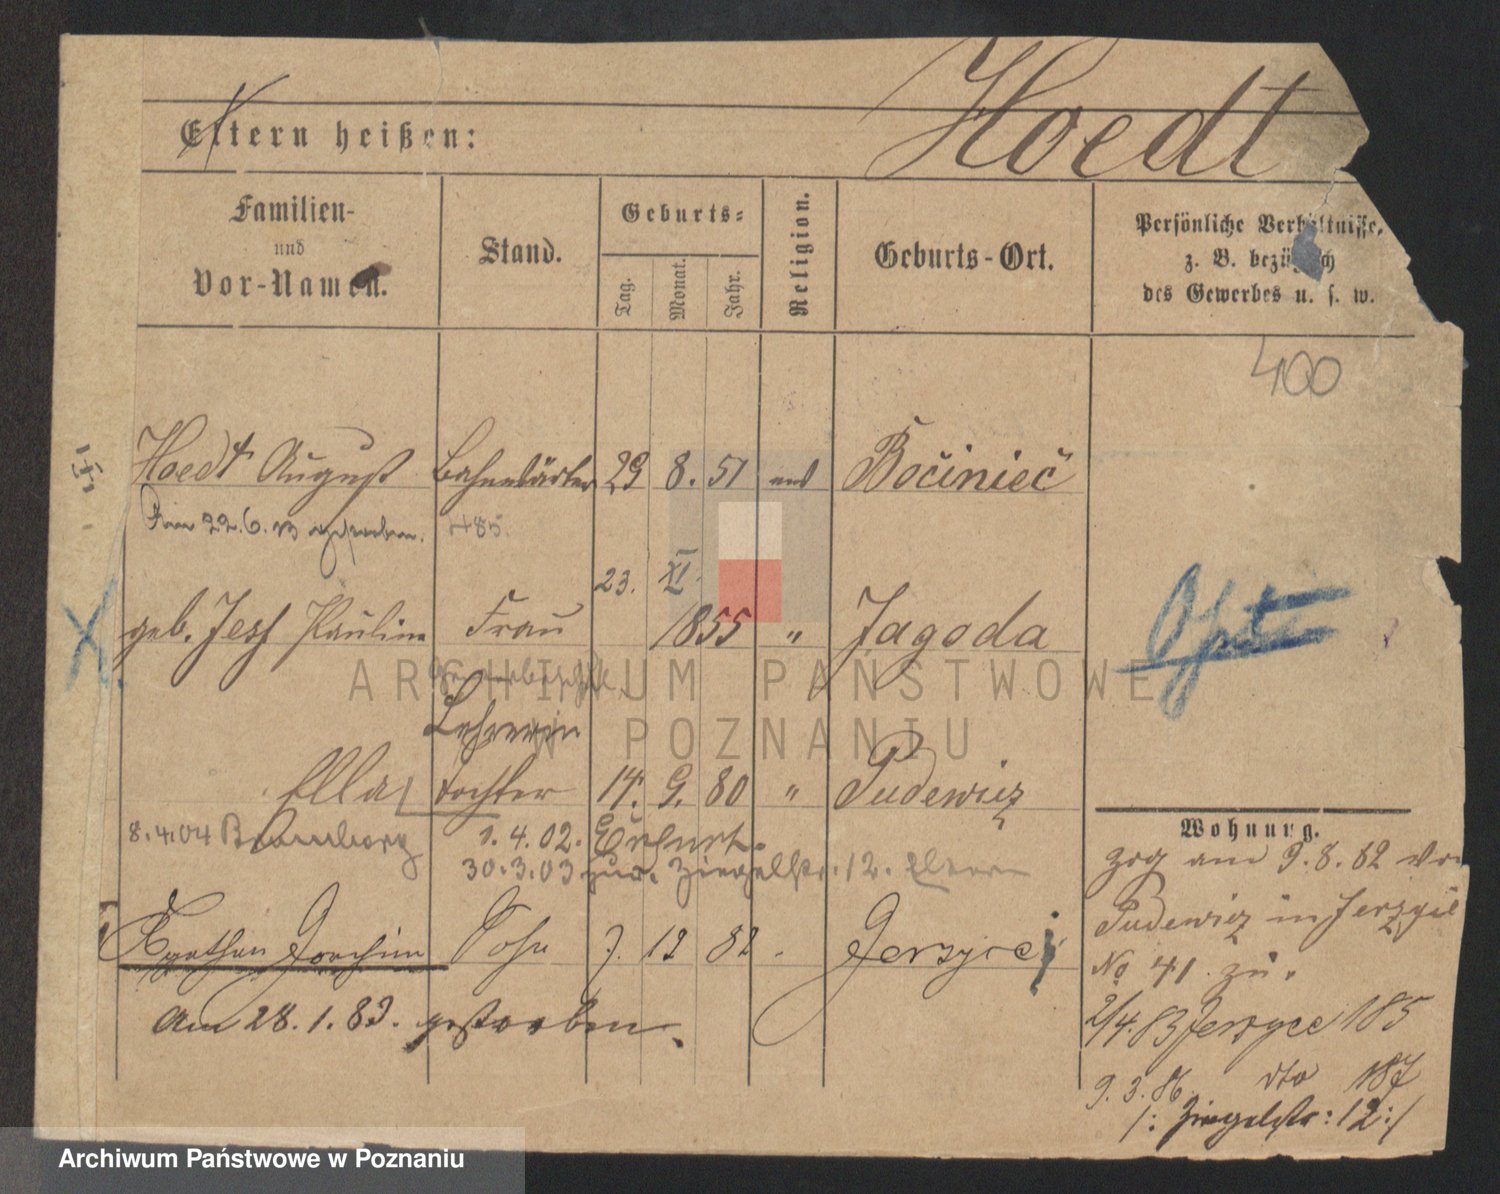 Hoedt
Eltern heißen:
Familien-
und
Vor-Namen.
Stand.
Geburts-
Tag.
Monat.
Jahr.
Religion.
Geburts-Ort.
Persönliche Verhältnisse,
z. B. bezüglich
des Gewerbes u. s. w.
400
Hoedt August Bahnwärter 29 8. 51 Bociniec
22.6. gestorben. 485.
23. XI.
geb. Jess Pauline Frau 1855 " Jagoda
Lehrerin
Ella Tochter 14. 9. 80 " Pudewitz
8.4.04 Bromberg 1.4.02. Erfurt.
30.3.03 zur. Ziegelstr. 12. Eltern
Joachim Sohn 7. 12 82 Jerzyce
Am 28.1.83. gestorben.
Wohnung.
zog am 9.8.82 von
Pudewitz in
No 41. zu.
2/4.83 Jerzyce 185
9.3.86. dto 187
/: Ziegelstr: 12:/
ARCHIWUM PAŃSTWOWE
W POZNANIU
Archiwum Państwowe w Poznaniu